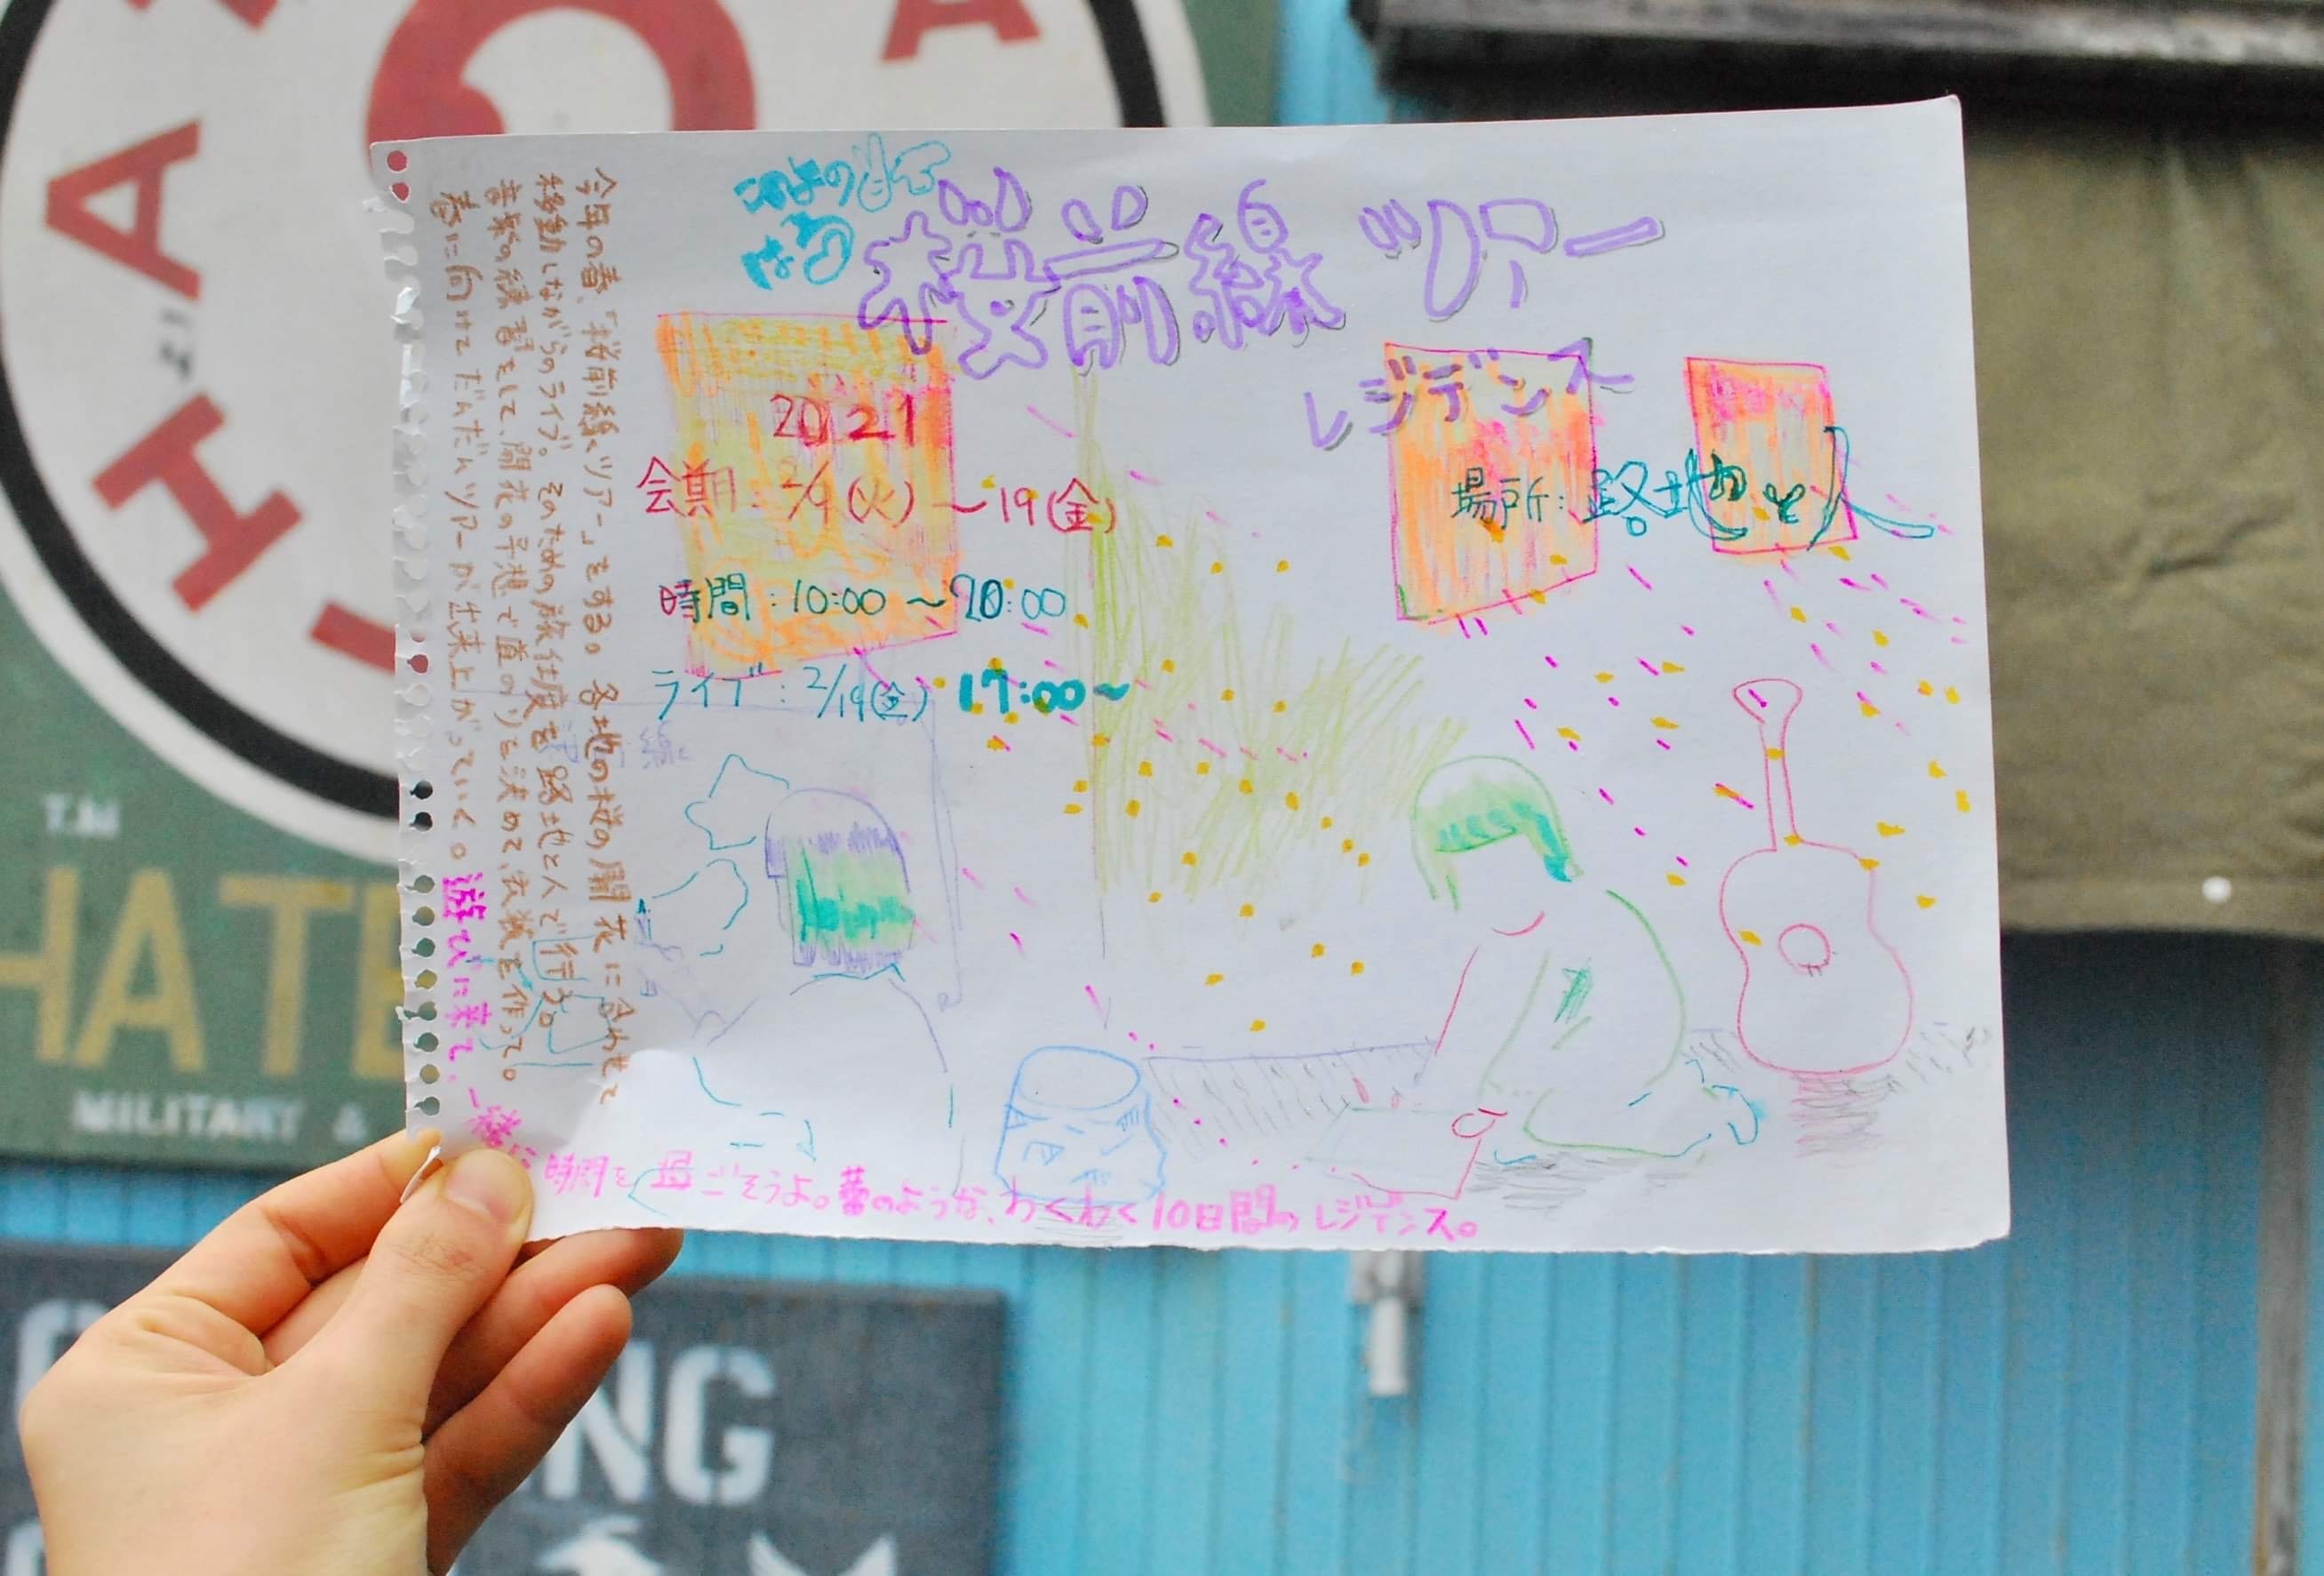 このよの
はる
桜前線ツアー
レジデンス
2021
会期：2/9(火)～19(金)
時間：10:00～20:00
ライブ：2/19(金) 17:00～
場所：路地と人
今年の春、「桜前線ツアー」をする。各地の桜の開花に合わせて
移動しながらのライブ。そのための旅仕度を路地と人で行う。
音楽の練習をして、開花の予想で道のりを決めて、衣装を作って。
春に向けてだんだんツアーが出来上がっていく。遊びに来て。
一緒な時間を過ごそうよ。蕾のような、わくわく10日間のレジデンス。
T.M
HATE
MILITARY &
NG